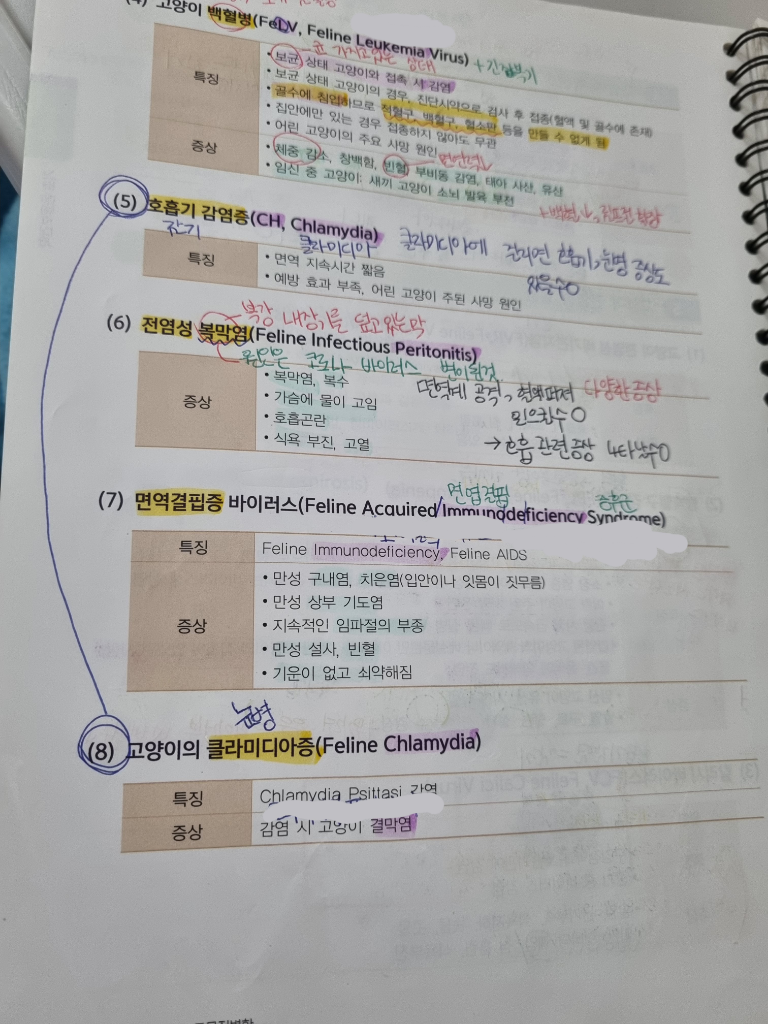 (4) 고양이 백혈병(FeLV, Feline Leukemia Virus)
균 가지고있는 상태
특징
• 보균 상태 고양이와 접촉 시 감염
• 보균 상태 고양이의 경우, 진단시약으로 검사 후 접종(혈액 및 골수에 존재)
• 골수에 침입하므로 적혈구, 백혈구, 혈소판 등을 만들 수 없게 됨
• 집안에만 있는 경우 접종하지 않아도 무관
• 어린 고양이의 주요 사망 원인
증상
• 체중 감소, 창백함, 빈혈, 부비동 감염, 태아 사산, 유산
• 임신 중 고양이: 새끼 고양이 소뇌 발육 부전
(5) 호흡기 감염증(CH, Chlamydia)
감기
클라미디아
클라미디아에 걸리면 호흡기, 눈병 증상도
있을수O
특징
• 면역 지속시간 짧음
• 예방 효과 부족, 어린 고양이 주된 사망 원인
복강 내장기를 덮고있는막
(6) 전염성 복막염(Feline Infectious Peritonitis)
원인은 코로나 바이러스 변이된것
증상
• 복막염, 복수
• 가슴에 물이 고임
• 호흡곤란
• 식욕 부진, 고열
면역체 공격, 다양한증상
→호흡 관련증상 나타날수O
면역결핍 증후군
(7) 면역결핍증 바이러스(Feline Acquired Immunodeficiency Syndrome)
특징
Feline Immunodeficiency, Feline AIDS
증상
• 만성 구내염, 치은염(입안이나 잇몸이 짓무름)
• 만성 상부 기도염
• 지속적인 임파절의 부종
• 만성 설사, 빈혈
• 기운이 없고 쇠약해짐
눈병
(8) 고양이의 클라미디아증(Feline Chlamydia)
특징
Chlamydia Psittasi 감염
증상
감염 시 고양이 결막염